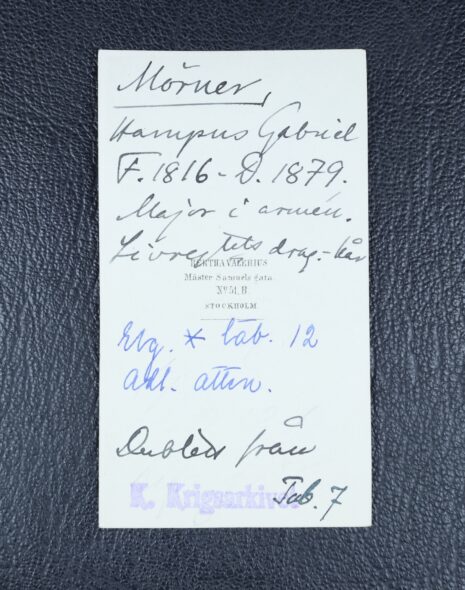 Mörner,
Hampus Gabriel
F. 1816 - D. 1879.
Major i armén.
Livregtets drag.-kår
BERTHA VALERIUS
Mäster Samuels gata
No 51. B.
STOCKHOLM.
Elg. * tab. 12
Adl. ättn.
Dublett från
Tab. 7
K. Krigsarkivet